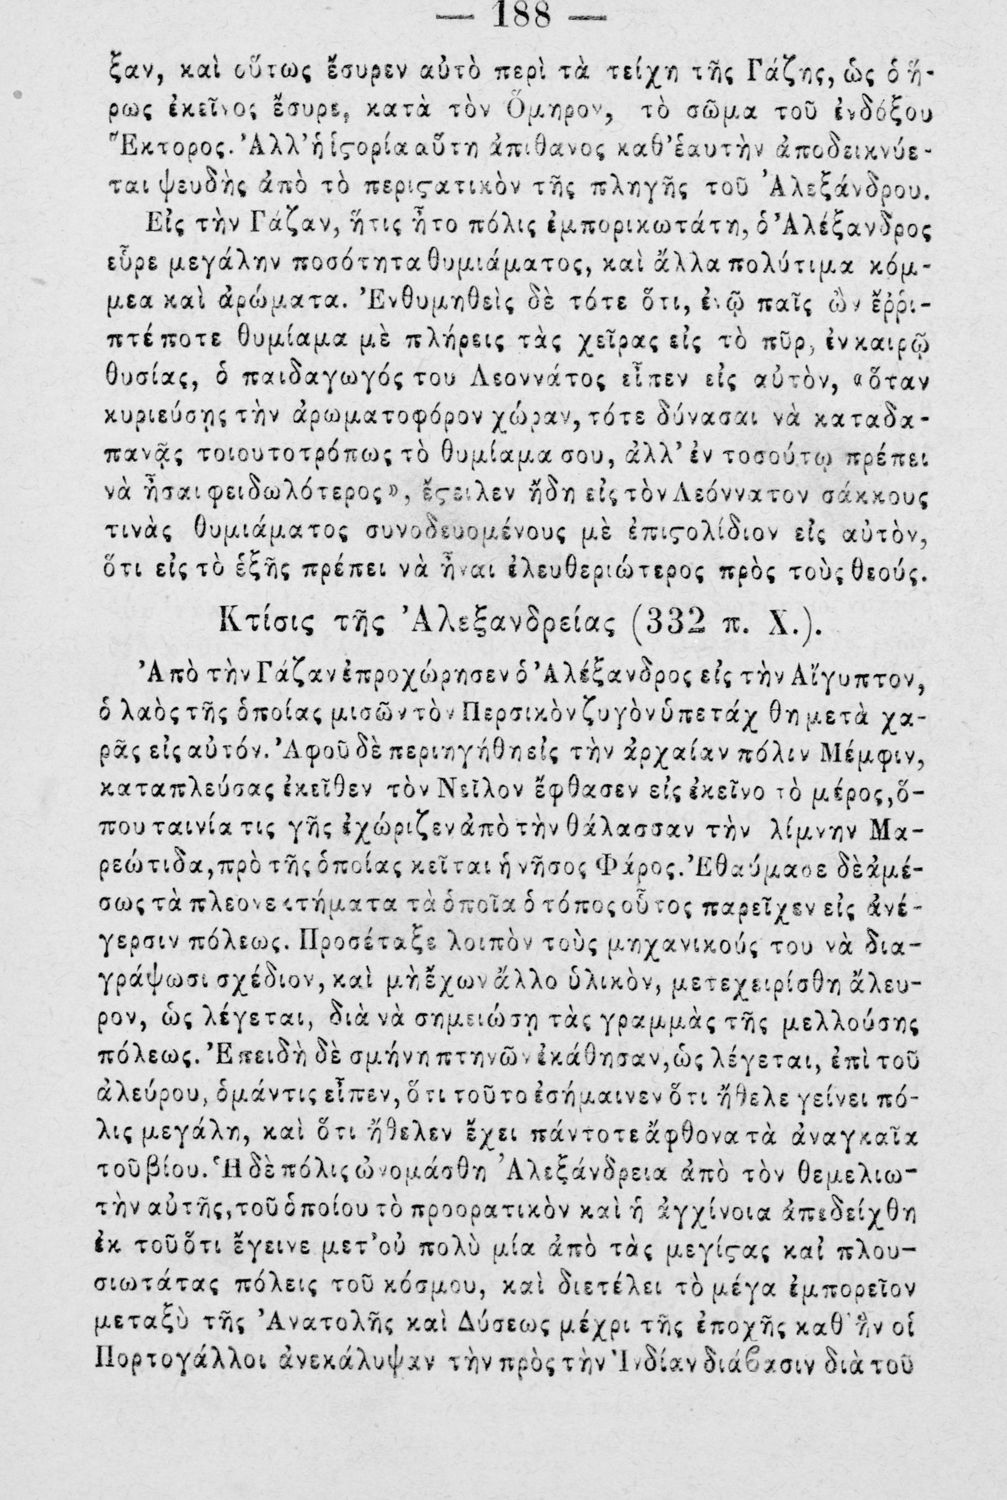 — 188 —
ξαν, καὶ οὕτως ἔσυρεν αὐτὸ περὶ τὰ τείχη τῆς Γάζης, ὡς ὁ ἥ-
ρως ἐκεῖνος ἔσυρε, κατὰ τὸν Ὅμηρον, τὸ σῶμα τοῦ ἐνδόξου
Ἕκτορος. Ἀλλ' ἡ ἱϛορία αὕτη ἀπίθανος καθ' ἑαυτὴν ἀποδεικνύε-
ται ψευδὴς ἀπὸ τὸ περιϛατικὸν τῆς πληγῆς τοῦ Ἀλεξάνδρου.
Εἰς τὴν Γάζαν, ἥτις ἦτο πόλις ἐμπορικωτάτη, ὁ Ἀλέξανδρος
εὗρε μεγάλην ποσότητα θυμιάματος, καὶ ἄλλα πολύτιμα κόμ-
μεα καὶ ἀρώματα. Ἐνθυμηθεὶς δὲ τότε ὅτι, ἐνῷ παῖς ὢν ἔῤῥι-
πτέ ποτε θυμίαμα μὲ πλήρεις τὰς χεῖρας εἰς τὸ πῦρ, ἐν καιρῷ
θυσίας, ὁ παιδαγωγός του Λεοννάτος εἶπεν εἰς αὐτὸν, «ὅταν
κυριεύσῃς τὴν ἀρωματοφόρον χώραν, τότε δύνασαι νὰ καταδα-
πανᾷς τοιουτοτρόπως τὸ θυμίαμα σου, ἀλλ' ἐν τοσούτῳ πρέπει
νὰ ἦσαι φειδωλότερος», ἔϛειλεν ἤδη εἰς τὸν Λεόννατον σάκκους
τινὰς θυμιάματος συνοδευομένους μὲ ἐπιϛολίδιον εἰς αὐτὸν,
ὅτι εἰς τὸ ἑξῆς πρέπει νὰ ἦναι ἐλευθεριώτερος πρὸς τοὺς θεούς.
Κτίσις τῆς Ἀλεξανδρείας (332 π. Χ.).
Ἀπὸ τὴν Γάζαν ἐπροχώρησεν ὁ Ἀλέξανδρος εἰς τὴν Αἴγυπτον,
ὁ λαὸς τῆς ὁποίας μισῶν τὸν Περσικὸν ζυγὸν ὑπετάχ θη μετὰ χα-
ρᾶς εἰς αὐτόν. Ἀφοῦ δὲ περιηγήθη εἰς τὴν ἀρχαίαν πόλιν Μέμφιν,
καταπλεύσας ἐκεῖθεν τὸν Νεῖλον ἔφθασεν εἰς ἐκεῖνο τὸ μέρος, ὅ-
που ταινία τις γῆς ἐχώριζεν ἀπὸ τὴν θάλασσαν τὴν λίμνην Μα-
ρεώτιδα, πρὸ τῆς ὁποίας κεῖται ἡ νῆσος Φάρος. Ἐθαύμασε δὲ ἀμέ-
σως τὰ πλεονεκτήματα τὰ ὁποῖα ὁ τόπος οὗτος παρεῖχεν εἰς ἀνέ-
γερσιν πόλεως. Προσέταξε λοιπὸν τοὺς μηχανικούς του νὰ δια-
γράψωσι σχέδιον, καὶ μὴ ἔχων ἄλλο ὑλικὸν, μετεχειρίσθη ἄλευ-
ρον, ὡς λέγεται, διὰ νὰ σημειώσῃ τὰς γραμμὰς τῆς μελλούσης
πόλεως. Ἐπειδὴ δὲ σμήνη πτηνῶν ἐκάθησαν, ὡς λέγεται, ἐπὶ τοῦ
ἀλεύρου, ὁ μάντις εἶπεν, ὅτι τοῦτο ἐσήμαινεν ὅτι ἤθελε γείνει πό-
λις μεγάλη, καὶ ὅτι ἤθελεν ἔχει πάντοτε ἄφθονα τὰ ἀναγκαῖα
τοῦ βίου. Ἡ δὲ πόλις ὠνομάσθη Ἀλεξάνδρεια ἀπὸ τὸν θεμελιω-
τὴν αὐτῆς, τοῦ ὁποίου τὸ προορατικὸν καὶ ἡ ἀγχίνοια ἀπεδείχθη
ἐκ τοῦ ὅτι ἔγεινε μετ' οὐ πολὺ μία ἀπὸ τὰς μεγίϛας καὶ πλου-
σιωτάτας πόλεις τοῦ κόσμου, καὶ διετέλει τὸ μέγα ἐμπορεῖον
μεταξὺ τῆς Ἀνατολῆς καὶ Δύσεως μέχρι τῆς ἐποχῆς καθ' ἣν οἱ
Πορτογάλλοι ἀνεκάλυψαν τὴν πρὸς τὴν Ἰνδίαν διάβασιν διὰ τοῦ